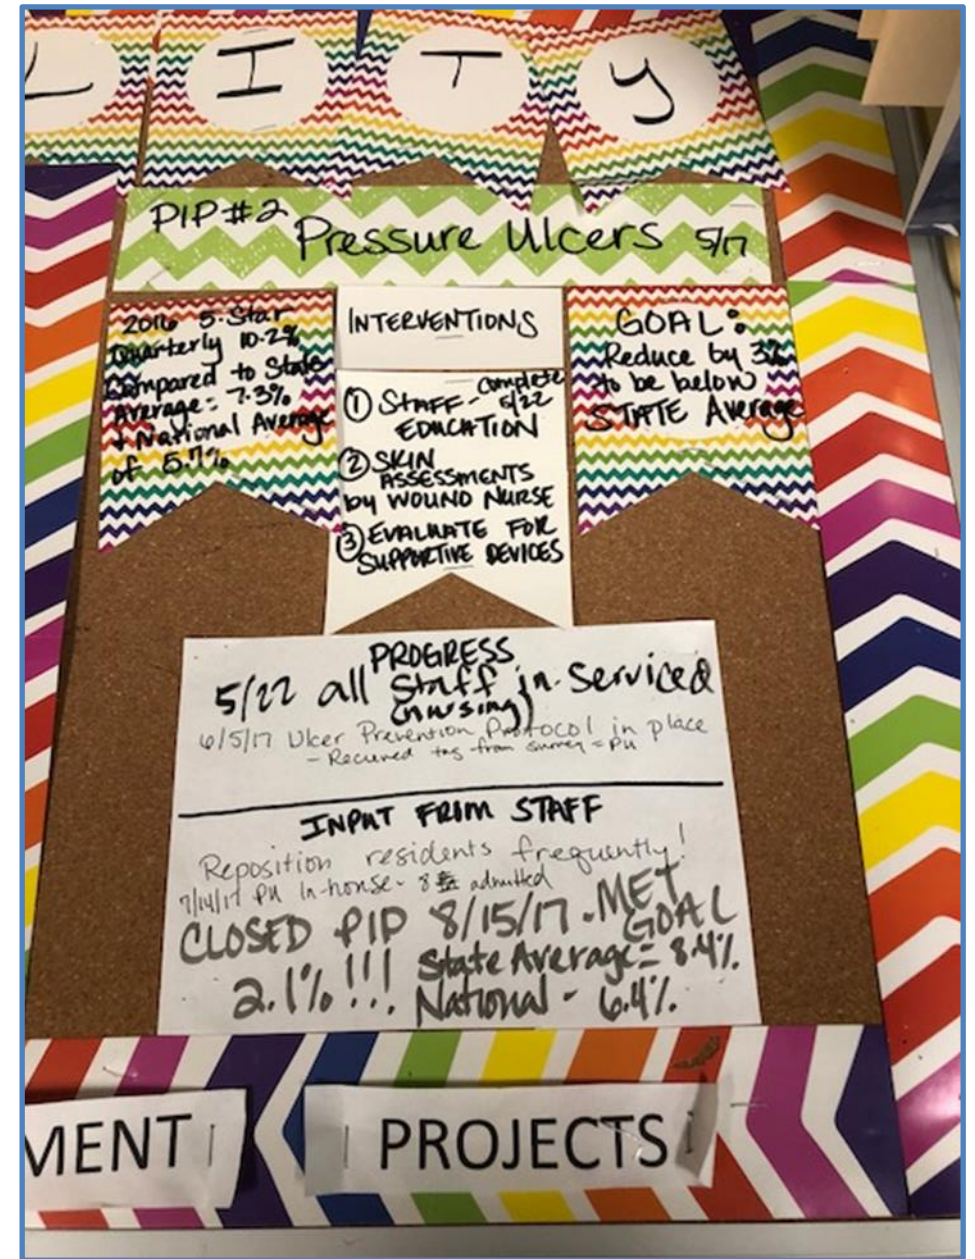 L I T Y
PIP #2
Pressure Ulcers 5/17
2016 5-Star
Quarterly 10.2%
Compared to State
Average = 7.3%
+ National Average
of 5.7%
INTERVENTIONS
① STAFF - complete 5/22
EDUCATION
② SKIN
ASSESSMENTS
by WOUND NURSE
③ EVALUATE FOR
SUPPORTIVE DEVICES
GOAL:
Reduce by 3%
to be below
STATE Average
PROGRESS
5/22 all staff in-serviced
(nursing)
6/5/17 Ulcer Prevention Protocol in place
- Recieved tag from survey = PU
INPUT FROM STAFF
Reposition residents frequently!
7/14/17 PU In-house - 8 admitted
CLOSED PIP 8/15/17 - MET
GOAL
2.1% !!! State Average = 8.4%
National - 6.4%
MENT PROJECTS